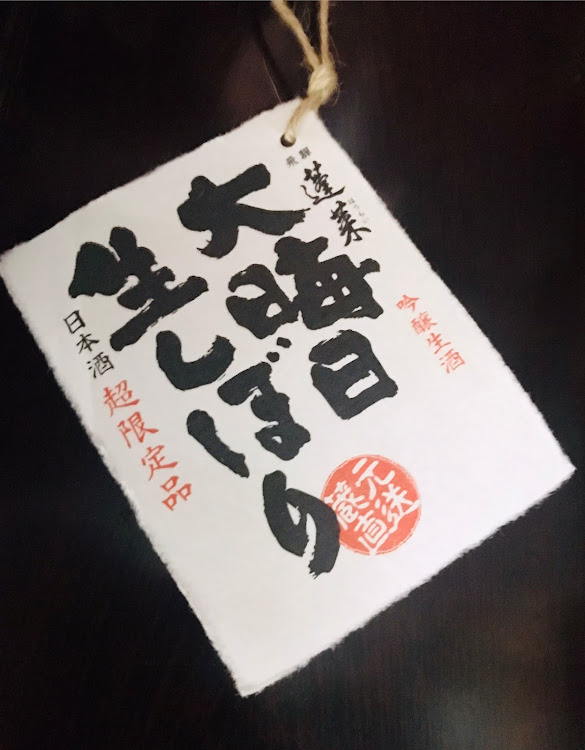 飛騨
蓬莱
ほうらい
大晦日
生しぼり
吟醸生酒
日本酒
超限定品
蔵元
直送